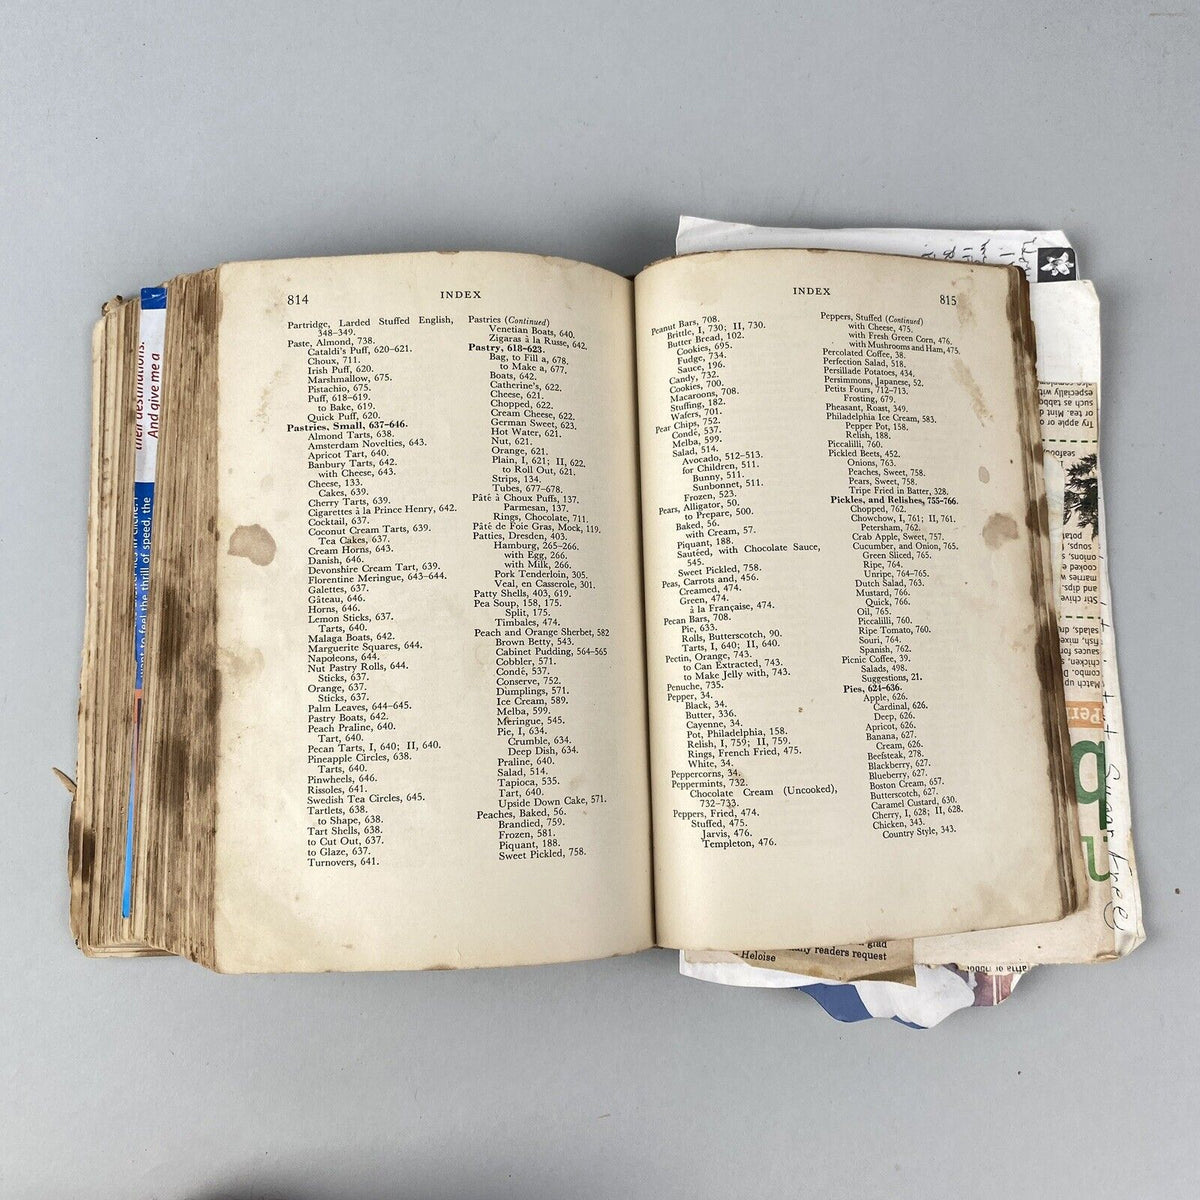 814
INDEX
Partridge, Larded Stuffed English,
348-349.
Paste, Almond, 738.
Cataldi's Puff, 620-621.
Choux, 711.
Irish Puff, 620.
Marshmallow, 675.
Pistachio, 675.
Puff, 618-619.
to Bake, 619.
Quick Puff, 620.
Pastries, Small, 637-646.
Almond Tarts, 638.
Amsterdam Novelties, 643.
Apricot Tart, 640.
Banbury Tarts, 642.
with Cheese, 643.
Cheese, 133.
Cakes, 639.
Cherry Tarts, 639.
Cigarettes à la Prince Henry, 642.
Cocktail, 637.
Coconut Cream Tarts, 639.
Tea Cakes, 637.
Cream Horns, 643.
Danish, 646.
Devonshire Cream Tart, 639.
Florentine Meringue, 643-644.
Galettes, 637.
Gâteau, 646.
Horns, 646.
Lemon Sticks, 637.
Tarts, 640.
Malaga Boats, 642.
Marguerite Squares, 644.
Napoleons, 644.
Nut Pastry Rolls, 644.
Sticks, 637.
Orange, 637.
Sticks, 637.
Palm Leaves, 644-645.
Pastry Boats, 642.
Peach Praline, 640.
Tart, 640.
Pecan Tarts, I, 640; II, 640.
Pineapple Circles, 638.
Tarts, 640.
Pinwheels, 646.
Rissoles, 641.
Swedish Tea Circles, 645.
Tartlets, 638.
to Shape, 638.
Tart Shells, 638.
to Cut Out, 637.
to Glaze, 637.
Turnovers, 641.
Pastries (Continued)
Venetian Boats, 640.
Zigaras à la Russe, 642.
Pastry, 618-623.
Bag, to Fill a, 678.
to Make a, 677.
Boats, 642.
Catherine's, 622.
Cheese, 621.
Chopped, 622.
Cream Cheese, 622.
German Sweet, 623.
Hot Water, 621.
Nut, 621.
Orange, 621.
Plain, I, 621; II, 622.
to Roll Out, 621.
Strips, 134.
Tubes, 677-678.
Pâté à Choux Puffs, 137.
Parmesan, 137.
Rings, Chocolate, 711.
Pâté de Foie Gras, Mock, 119.
Patties, Dresden, 403.
Hamburg, 265-266.
with Egg, 266.
with Milk, 266.
Pork Tenderloin, 305.
Veal, en Casserole, 301.
Patty Shells, 403, 619.
Pea Soup, 158, 175.
Split, 175.
Timbales, 474.
Peach and Orange Sherbet, 582
Brown Betty, 543.
Cabinet Pudding, 564-565
Cobbler, 571.
Condé, 537.
Conserve, 752.
Dumplings, 571.
Ice Cream, 589.
Melba, 599.
Meringue, 545.
Pie, I, 634.
Crumble, 634.
Deep Dish, 634.
Praline, 640.
Salad, 514.
Tapioca, 535.
Tart, 640.
Upside Down Cake, 571.
Peaches, Baked, 56.
Brandied, 759.
Frozen, 581.
Piquant, 188.
Sweet Pickled, 758.
INDEX
815
Peanut Bars, 708.
Brittle, I, 730; II, 730.
Butter Bread, 102.
Cookies, 695.
Fudge, 734.
Sauce, 196.
Candy, 732.
Cookies, 700.
Macaroons, 708.
Stuffing, 182.
Wafers, 701.
Pear Chips, 752.
Condé, 537.
Melba, 599.
Salad, 514.
Avocado, 512-513.
for Children, 511.
Bunny, 511.
Sunbonnet, 511.
Frozen, 523.
Pears, Alligator, 50.
to Prepare, 500.
Baked, 56.
with Cream, 57.
Piquant, 188.
Sautéed, with Chocolate Sauce,
545.
Sweet Pickled, 758.
Peas, Carrots and, 456.
Creamed, 474.
Green, 474.
à la Française, 474.
Pecan Bars, 708.
Pie, 633.
Rolls, Butterscotch, 90.
Tarts, I, 640; II, 640.
Pectin, Orange, 743.
to Can Extracted, 743.
to Make Jelly with, 743.
Penuche, 735.
Pepper, 34.
Black, 34.
Butter, 336.
Cayenne, 34.
Pot, Philadelphia, 158.
Relish, I, 759; II, 759.
Rings, French Fried, 475.
White, 34.
Peppercorns, 34.
Peppermints, 732.
Chocolate Cream (Uncooked),
732-733.
Peppers, Fried, 474.
Stuffed, 475.
Jarvis, 476.
Templeton, 476.
Peppers, Stuffed (Continued)
with Cheese, 475.
with Fresh Green Corn, 476.
with Mushrooms and Ham, 475.
Percolated Coffee, 38.
Perfection Salad, 518.
Persillade Potatoes, 434.
Persimmons, Japanese, 52.
Petits Fours, 712-713.
Frosting, 679.
Pheasant, Roast, 349.
Philadelphia Ice Cream, 583.
Pepper Pot, 158.
Relish, 188.
Piccalilli, 760.
Pickled Beets, 452.
Onions, 763.
Peaches, Sweet, 758.
Pears, Sweet, 758.
Tripe Fried in Batter, 328.
Pickles, and Relishes, 755-766.
Chopped, 762.
Chowchow, I, 761; II, 761.
Petersham, 762.
Crab Apple, Sweet, 757.
Cucumber, and Onion, 765.
Green Sliced, 765.
Ripe, 764.
Unripe, 764-765.
Dutch Salad, 763.
Mustard, 766.
Quick, 766.
Oil, 765.
Piccalilli, 760.
Ripe Tomato, 760.
Souri, 764.
Spanish, 762.
Picnic Coffee, 39.
Salads, 498.
Suggestions, 21.
Pies, 624-636.
Apple, 626.
Cardinal, 626.
Deep, 626.
Apricot, 626.
Banana, 627.
Cream, 626.
Beefsteak, 278.
Blackberry, 627.
Blueberry, 627.
Boston Cream, 657.
Butterscotch, 627.
Caramel Custard, 630.
Cherry, I, 628; II, 628.
Chicken, 343.
Country Style, 343.
their destinations.
And give me a
to feel the thrill of speed, the
Try apple or
or tea. Mint
such as
especially with
Sugar free
glad
many readers request
Heloise